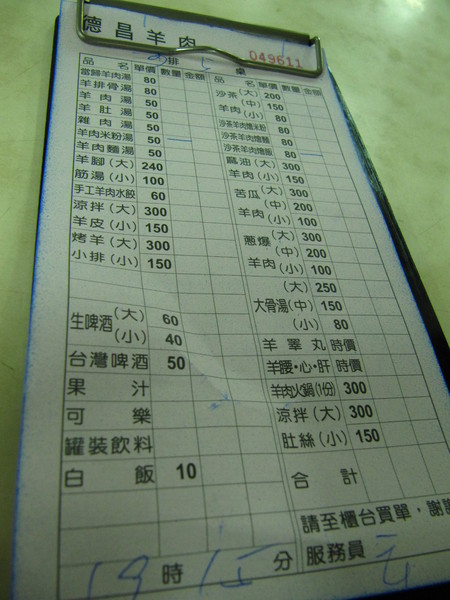 德昌羊肉
049611
桌
品 名 單價 數量 金額
當歸羊肉湯 80
羊排骨湯 80
羊肉湯 50
羊肚湯 50
雜肉湯 50
羊肉米粉湯 50
羊肉麵湯 50
羊腳(大) 240
筋湯(小) 100
手工羊肉水餃 60
涼拌(大) 300
羊皮(小) 150
烤羊(大) 300
小排(小) 150
生啤酒(大) 60
(小) 40
台灣啤酒 50
果汁
可樂
罐裝飲料
白飯 10
品 名 單價 數量 金額
沙茶(大) 200
(中) 150
羊肉(小) 80
沙茶羊肉燴米粉 80
沙茶羊肉燴麵 80
沙茶羊肉燴飯 80
麻油(大) 300
羊肉(小) 100
苦瓜(大) 300
(中) 200
羊肉(小) 100
蔥爆(大) 300
(中) 200
羊肉(小) 100
(大) 250
大骨湯(中) 150
(小) 80
羊睪丸 時價
羊腰·心·肝 時價
羊肉火鍋(1份) 300
涼拌(大) 300
肚絲(小) 150
合計
請至櫃台買單,謝謝
服務員
19 時 15 分